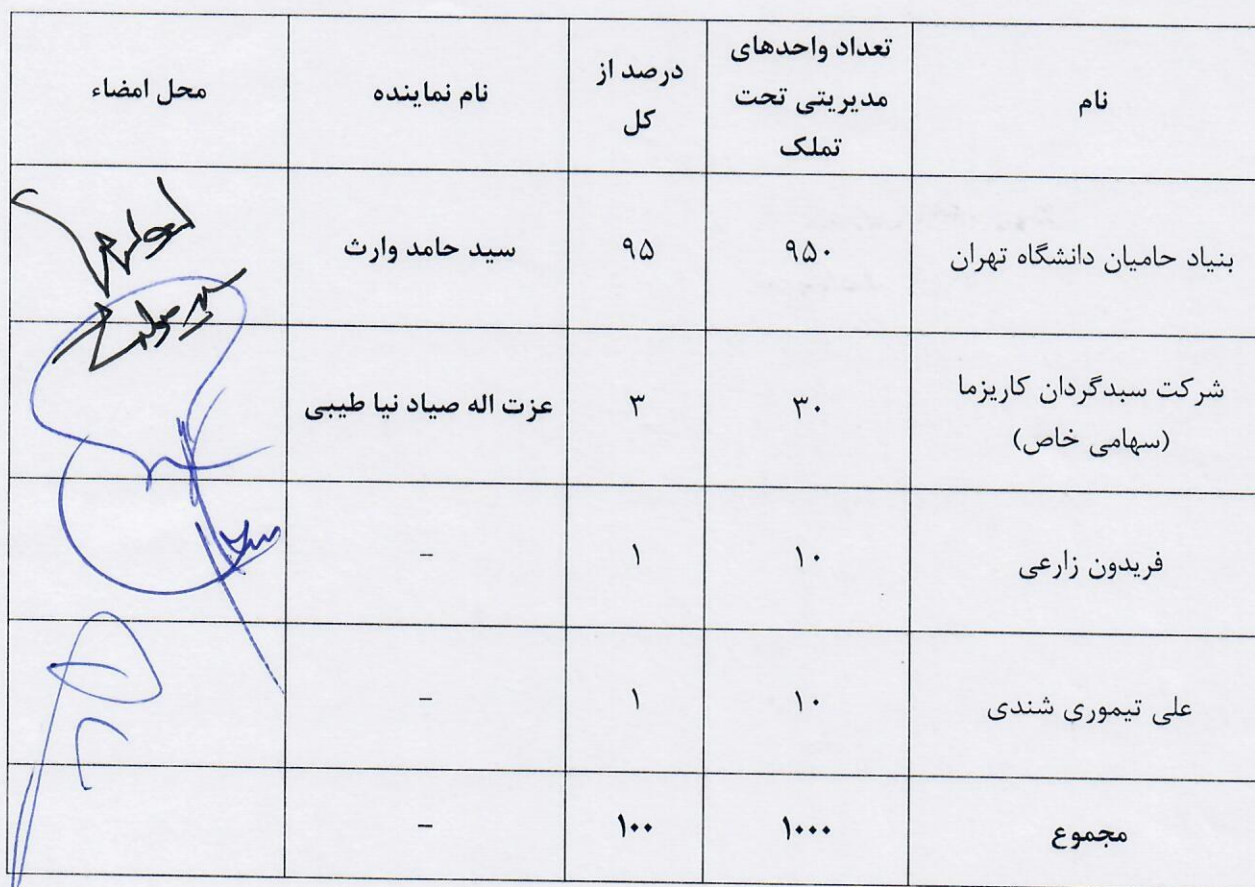 نام تعداد واحدهای مدیریتی تحت تملک درصد از کل نام نماینده محل امضاء
بنیاد حامیان دانشگاه تهران ۹۵۰ ۹۵ سید حامد وارث
شرکت سبدگردان کاریزما
(سهامی خاص) ۳۰ ۳ عزت اله صیاد نیا طیبی
فریدون زارعی ۱۰ ۱ -
علی تیموری شندی ۱۰ ۱ -
مجموع ۱۰۰۰ ۱۰۰ -